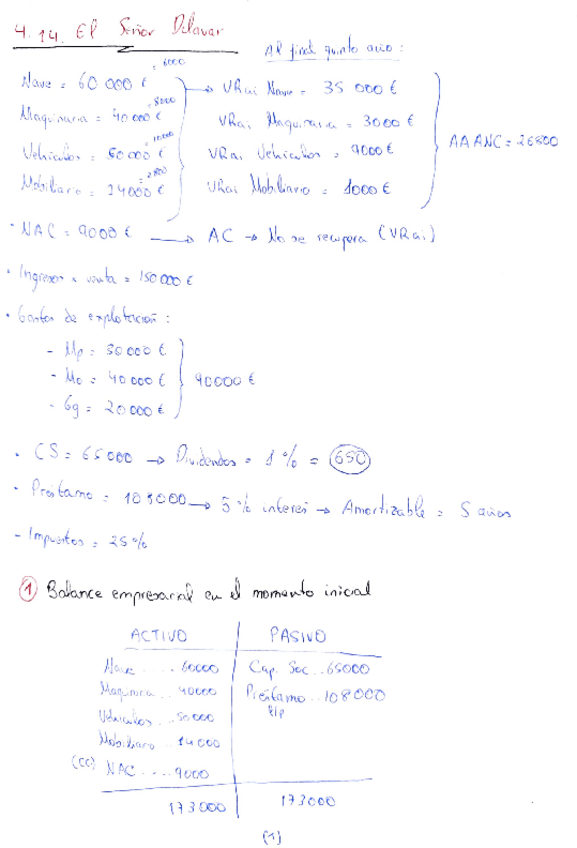 4.14. El Señor Delavar
Al final quinto año:
Nave = 60 000 € = 6000 → VRai Nave = 35 000 €
Maquinaria = 40 000 € = 8000 VRai Maquinaria = 3000 €
Vehículos = 50 000 € = 10000 VRai Vehículos = 9000 € AAANC = 26800
Mobiliario = 14 000 € = 2800 VRai Mobiliario = 1000 €
· NAC = 9000 € → AC → No se recupera (VRai)
· Ingresos x venta = 150 000 €
· Gastos de explotación:
- Mp = 30 000 €
- Mo = 40 000 € 90 000 €
- Gg = 20 000 €
· CS = 65 000 → Dividendos = 1 % = 650
· Préstamo = 108 000 → 5 % interés → Amortizable = 5 años
- Impuestos = 25 %
① Balance empresarial en el momento inicial
ACTIVO PASIVO
Nave .... 60000 Cap. Soc .. 65000
Maquinaria ... 40000 Préstamo .. 108000
Vehículos ... 50000 l/p
Mobiliario .. 14000
(CC) NAC .... 9000
173000 173000
(1)